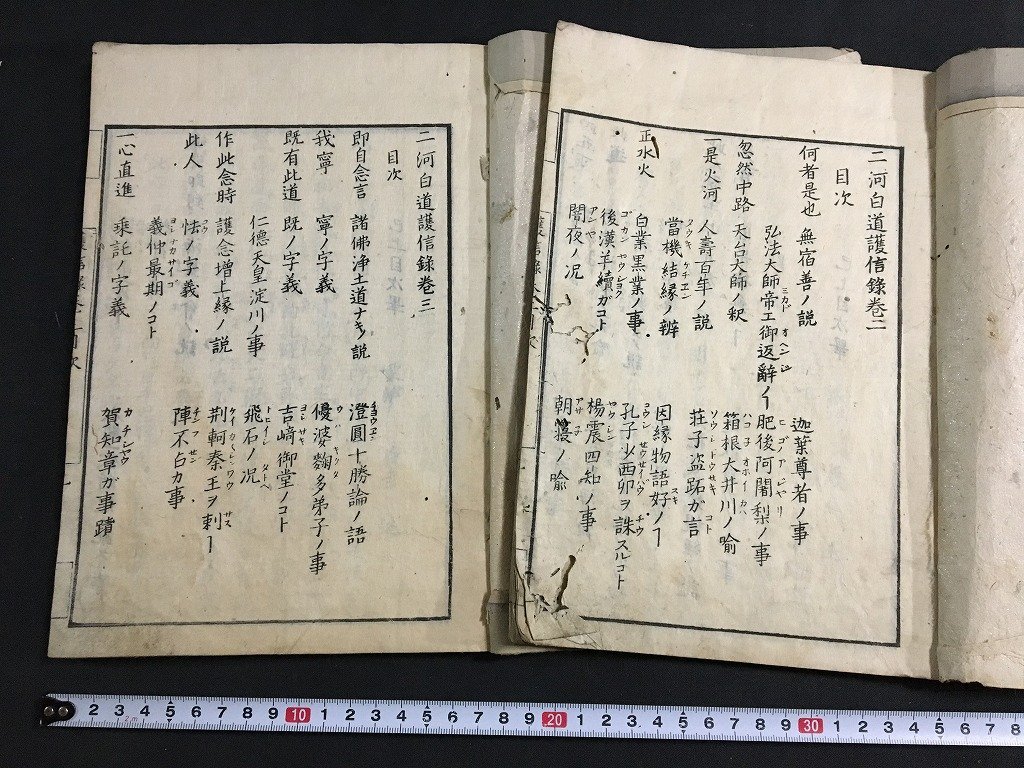 二河白道護信錄卷二
目次
何者是也 無宿善ノ說 迦葉尊者ノ事
弘法大師帝王御返辭ノ𬼀 肥後阿闍梨ノ事
忽然中路 天台大師ノ釈 箱根大井川ノ喻
一是火河 人壽百年ノ說 莊子盜跖ガ言
當機結縁ノ辨 因縁物語好ノ𬼀
正水火 白業黒業ノ事 孔子少西卯ヲ誅スルコト
後漢羊續ガコト 楊震四知ノ事
闇夜ノ况 朝寝ノ喻
二河白道護信錄卷三
目次
即自念言 諸佛淨土道ナキノ說 澄圓十勝論ノ語
我寧 寧ノ字義 優婆麴多弟子ノ事
既有此道 既ノ字義 吉﨑御堂ノコト
仁德天皇淀川ノ事 飛石ノ况
作此念時 護念增上縁ノ說 荆軻秦王ヲ刺𬼀
此人 怯ノ字義 陣不占カ事
義仲最期ノコト
一心直進 乘託ノ字義 賀知章ガ事蹟
2 3 4 5 6 7 8 9 10 1 2 3 4 5 6 7 8 9 20 1 2 3 4 5 6 7 8 9 30 1 2 3 4 5 6 7 8